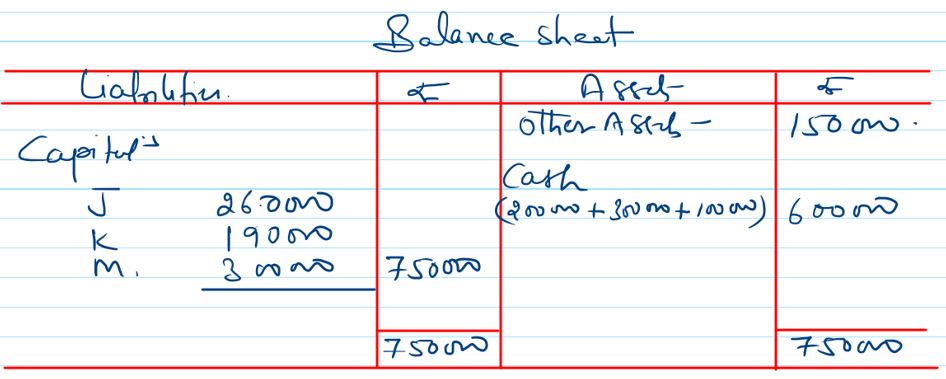 Balance sheet
Liabilities. ₹ Assets ₹
Other Assets - 150000.
Capital's
Cash
J 260000 (200000 + 300000 + 100000) 600000
K 190000
M. 300000 750000
750000 750000